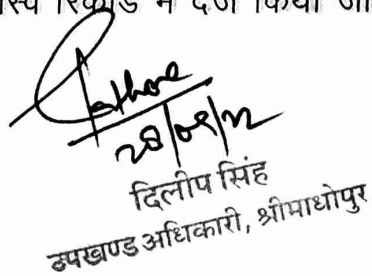 रिकॉर्ड में दर्ज किया
Rathore
दिलीप सिंह
उपखण्ड अधिकारी, श्रीमाधोपुर